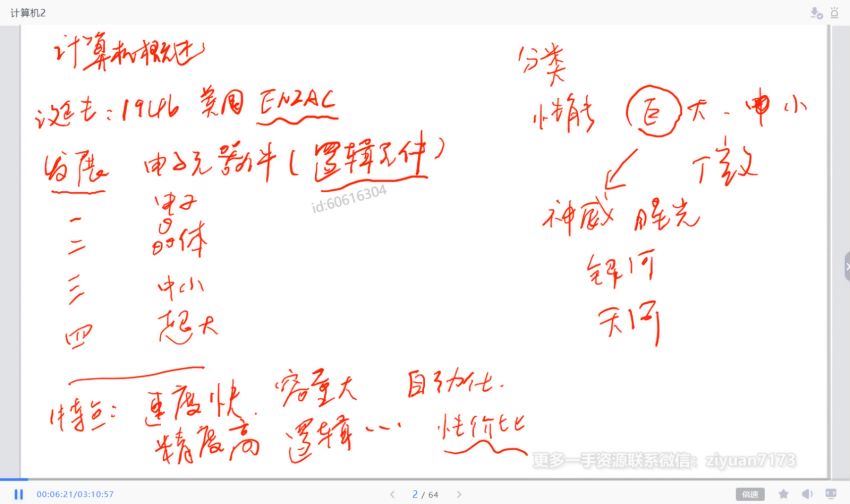 计算机2
计算机概述
诞生:1946 美国 ENIAC
发展 电子元器件(逻辑元件)
一 电子
二 晶体
三 中小
四 超大
特点:速度快. 容量大 自动化.
精度高 逻辑… 性价比
分类
性能 巨 大、中 小
个 微
神威 曙光
银河
天河
id:60616304
更多一手资源联系微信:ziyuan7173
00:06:21/03:10:57
2 / 64
倍速